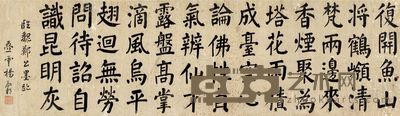 復開魚山
将鶴嶺清
梵兩邊来
香煙聚為
塔花雨積
成臺空心
論佛性貞
氣辨仙才
露盤高掌
滴風烏平
翅迴無勞
問待詔自
識昆明灰
臨魏鄭公墨迹
雲楊